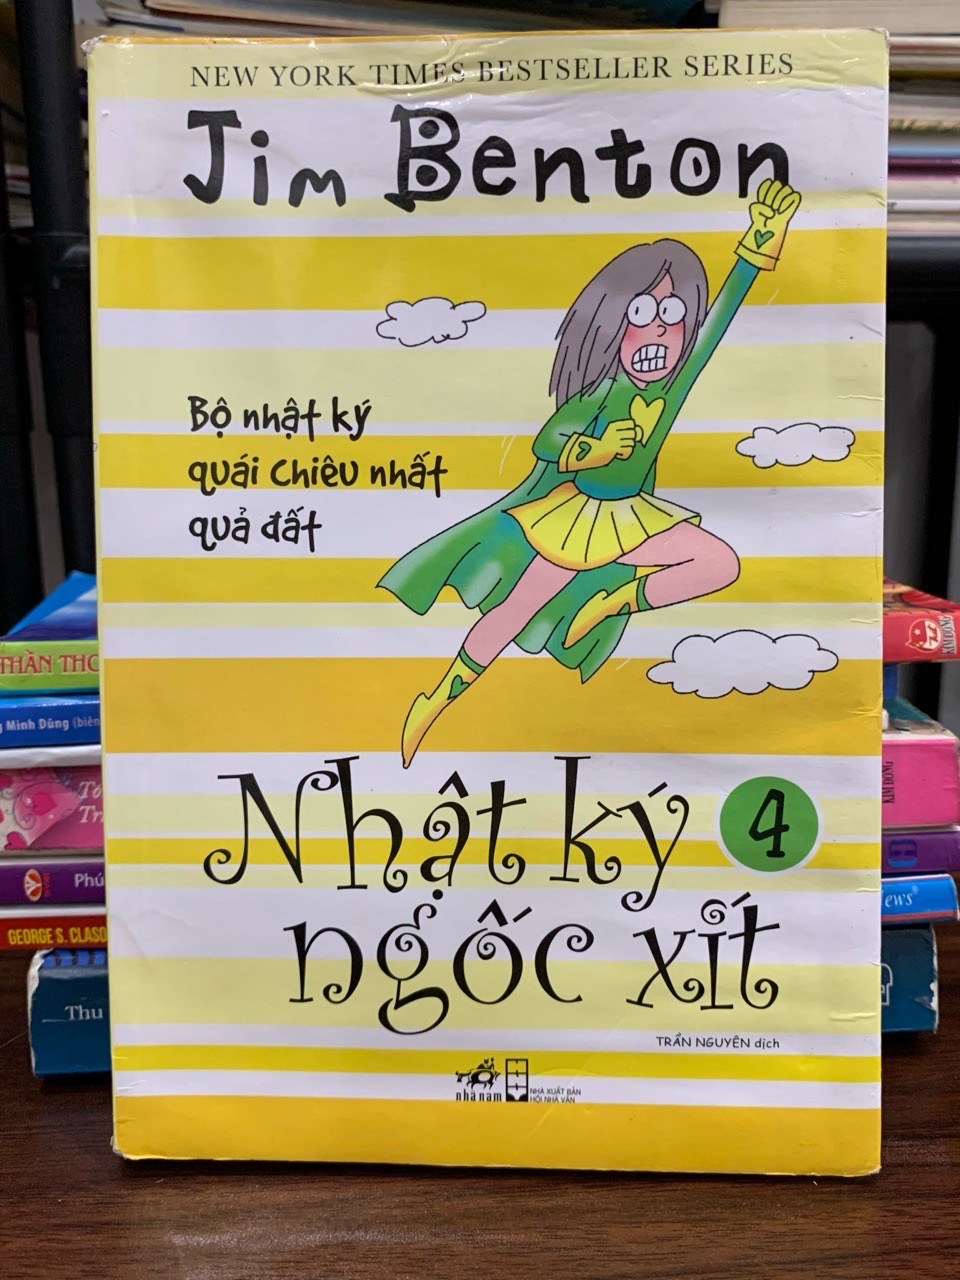 NEW YORK TIMES BESTSELLER SERIES
Jim Benton
Bộ nhật ký
quái chiêu nhất
quả đất
Nhật ký 4
ngốc xít
TRẦN NGUYÊN dịch
nhã nam
NHÀ XUẤT BẢN
HỘI NHÀ VĂN
THẦN
Minh Dũng (biên
Phú
GEORGE S. CLASO
Thu
KIM ĐỒNG
KIM ĐỒNG
ews®